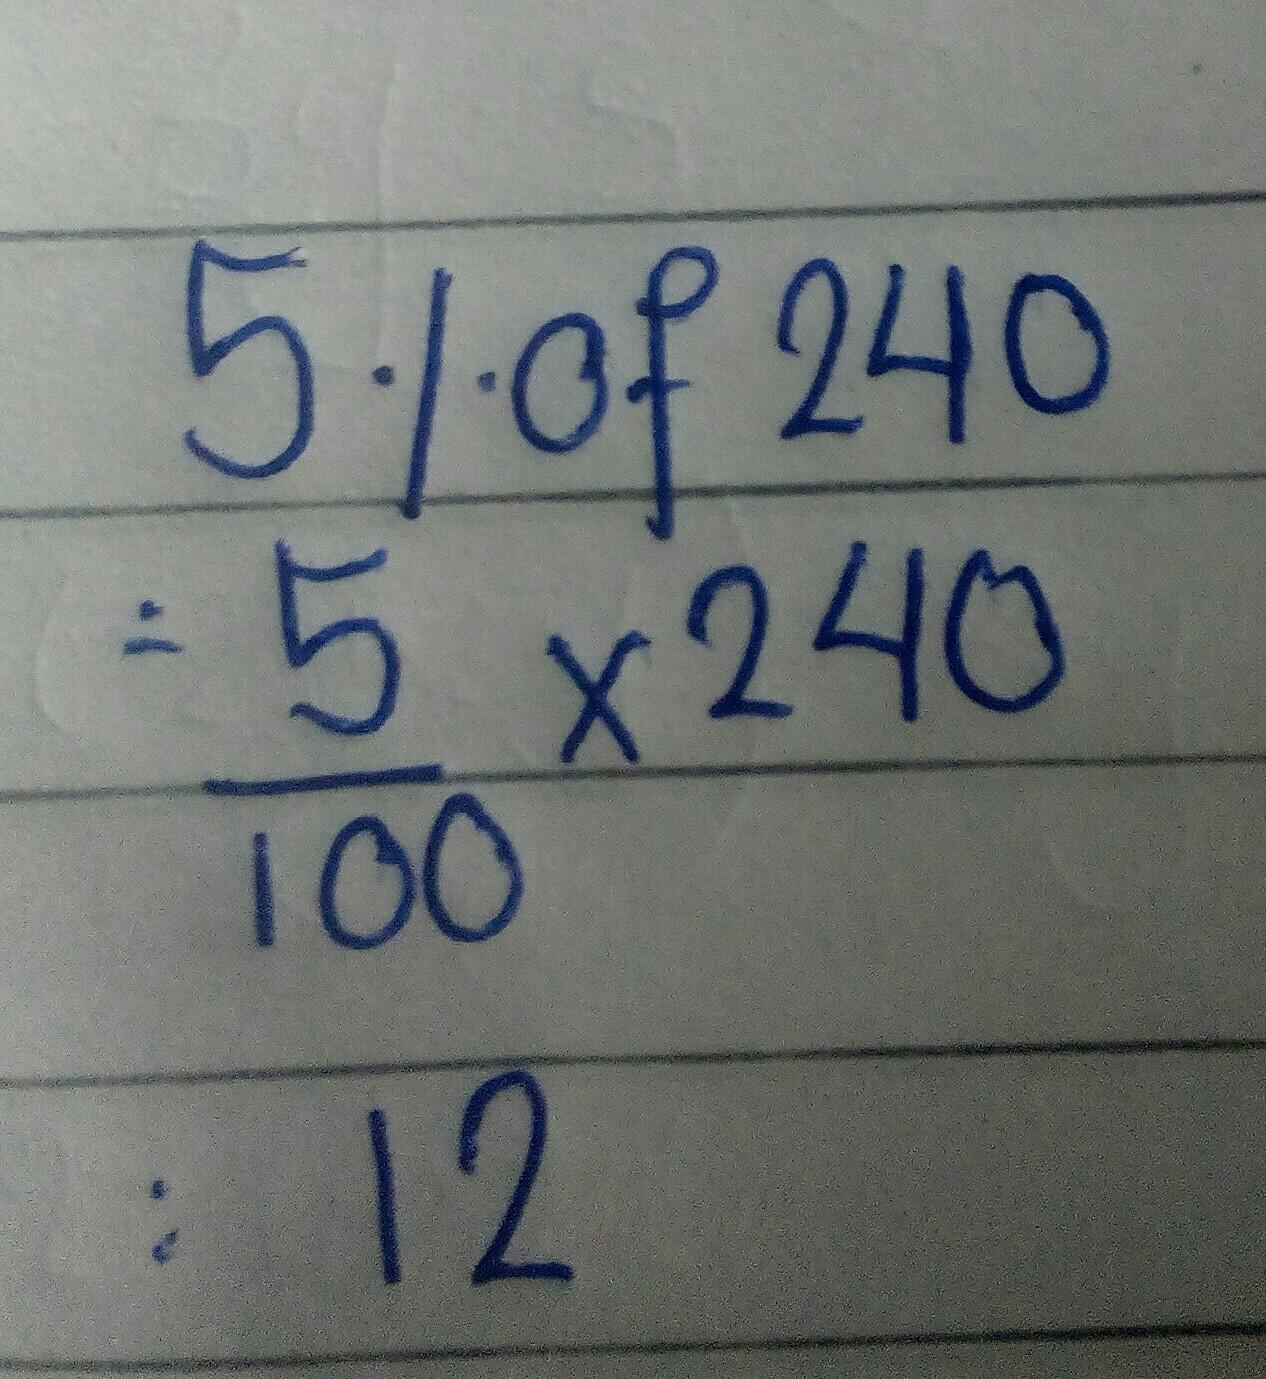 5 % of 240
= 5/100 x 240
= 12